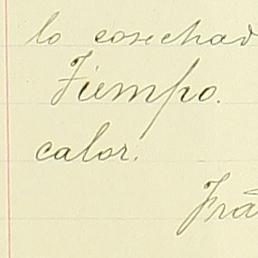 lo cosechad
Tiempo.
calor.
Frá